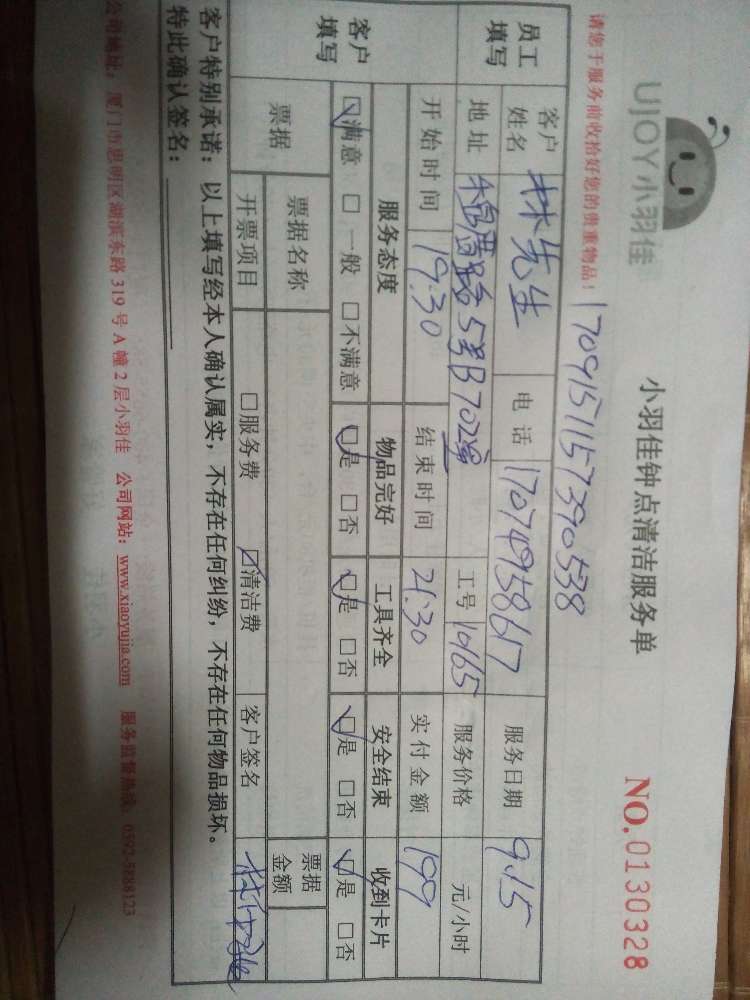 UJOY小羽佳
小羽佳钟点清洁服务单
NO.0130328
请您于服务前收拾好您的贵重物品！
170915115739 0538
员工填写
客户姓名 林先生 电话 17074958617 服务日期 9.15
地址 5号B702室 工号 1965 服务价格 元/小时
开始时间 19:30 结束时间 21:30 实付金额 199
客户填写
服务态度 物品完好 工具齐全 安全结束 收到卡片
☑满意 □一般 □不满意 ☑是 □否 ☑是 □否 ☑是 □否 ☑是 □否
票据 票据名称 票据金额
开票项目 □服务费 ☑清洁费 客户签名
客户特别承诺：以上填写经本人确认属实，不存在任何纠纷，不存在任何物品损坏。
特此确认签名：
公司地址：厦门市思明区湖滨东路319号A幢2层小羽佳 公司网站：www.xiaoyujia.com 服务监督热线：0592-5888123